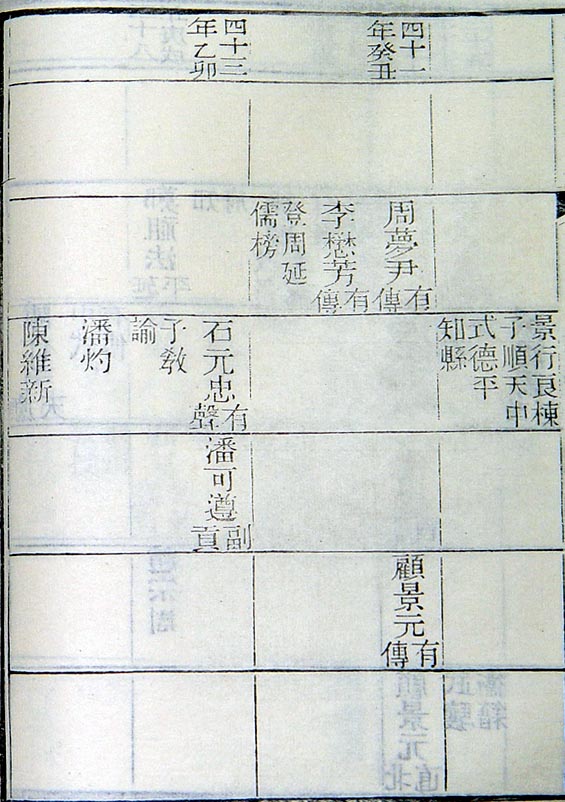 景行良棟
子順天中
式德平
知縣
四十一
年癸丑
周夢尹有傳
李懋芳有傳
登周延
儒榜
顧景元有傳
四十三
年乙卯
石元忠有聲
子教
諭
潘灼
陳維新
潘可遵副貢